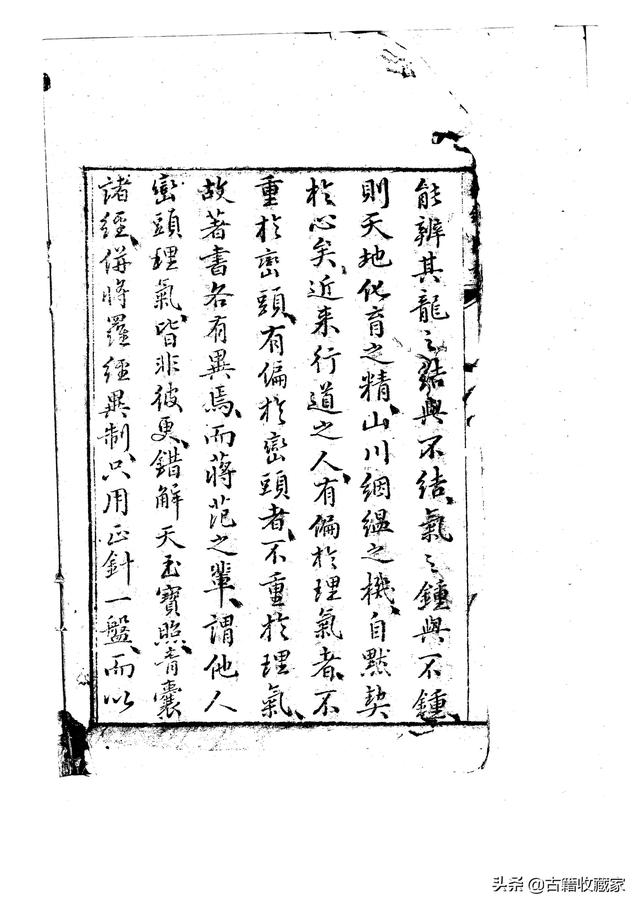 能辨其龍之結與不結氣之鍾與不鍾
則天地化育之精山川絪縕之機自默契
於心矣近来行道之人有偏於理氣者不
重於巒頭有偏於巒頭者不重於理氣
故著書各有異焉而蔣范之輩謂他人
巒頭理氣皆非彼更錯解天玉寶照青囊
諸經併將羅經異制只用正針一盤而以
头条 @古籍收藏家